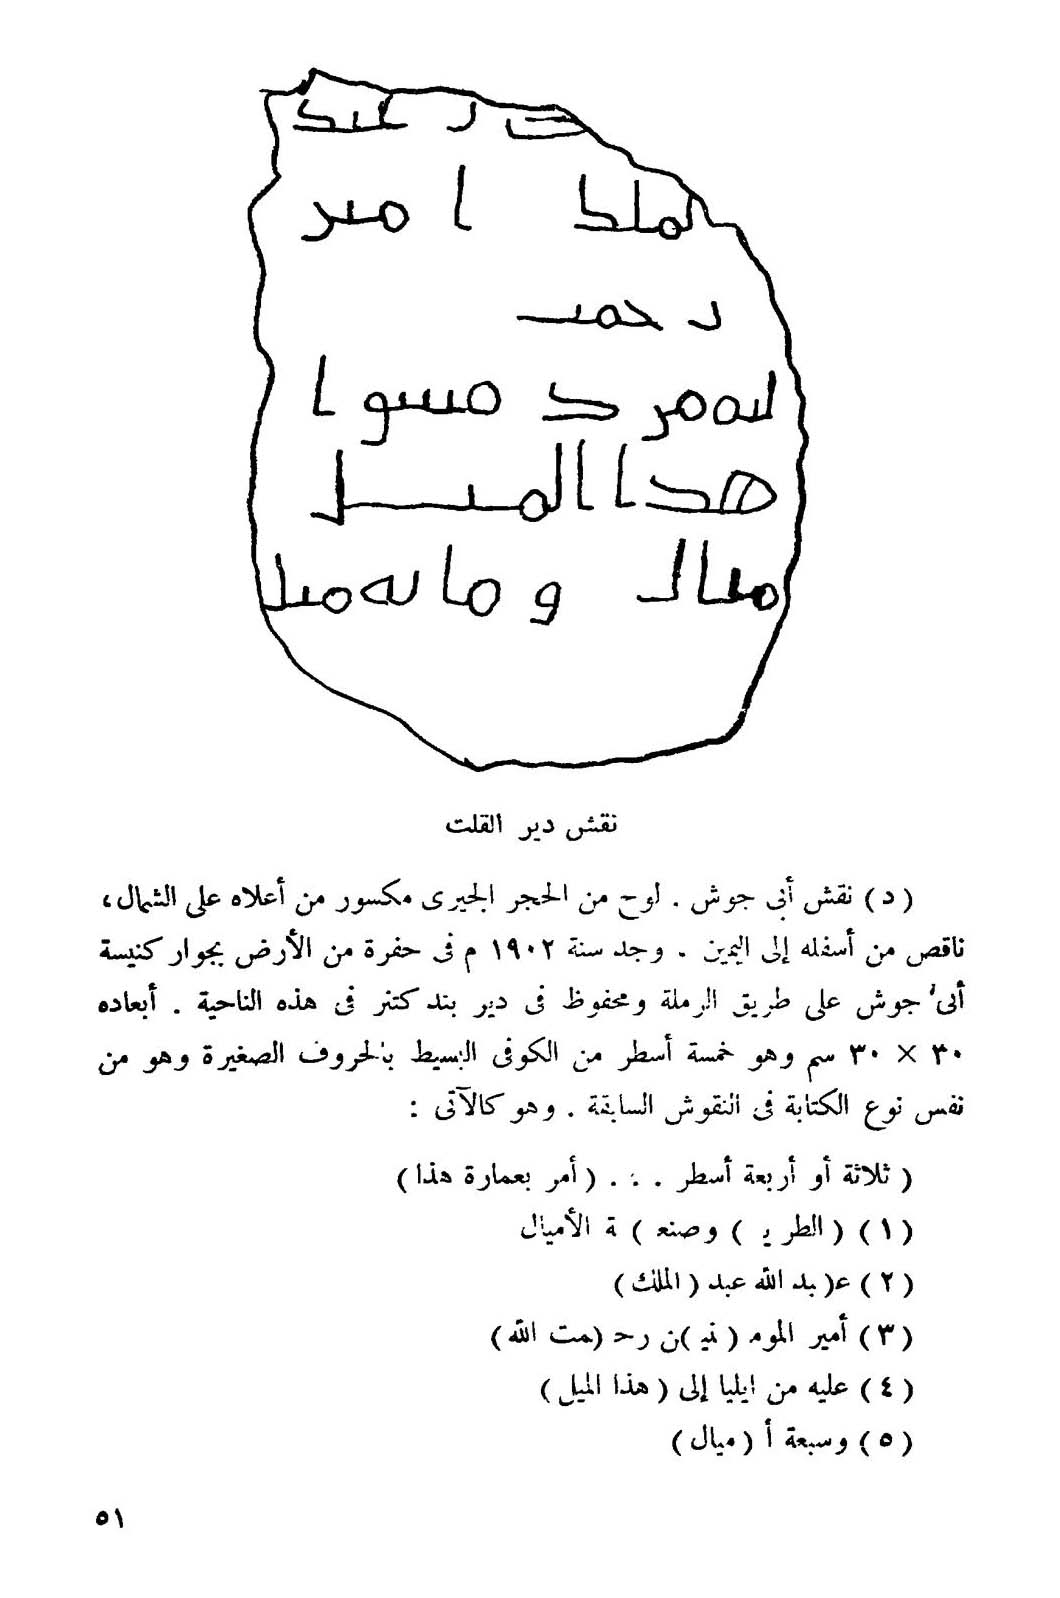 عبد
الملك امير
رحمت
الله
عليه من دمسق ا
هذا الميل
ميال ومائه ميل
نقش دير القلت
( د ) نقش أبى جوش . لوح من الحجر الجيرى مكسور من أعلاه على الشمال ،
ناقص من أسفله إلى اليمين . وجد سنة ١٩٠٢ م فى حفرة من الأرض بجوار كنيسة
أبى جوش على طريق الرملة ومحفوظ فى دير بندكتنر فى هذه الناحية . أبعاده
٣٠ × ٣٠ سم وهو خمسة أسطر من الكوفى البسيط بالحروف الصغيرة وهو من
نفس نوع الكتابة فى النقوش السابقة . وهو كالآتى :
( ثلاثة أو أربعة أسطر . . . ( أمر بعمارة هذا )
( ١ ) ( الطر يـ ) وصنعـ ) ة الأميال
( ٢ ) عـ( بد الله عبد ( الملك )
( ٣ ) أمير الموم ( نيـ)ن رحـ ( ـمت الله )
( ٤ ) عليه من ايليا إلى ( هذا الميل )
( ٥ ) وسبعة أ ( ميال )
٥١